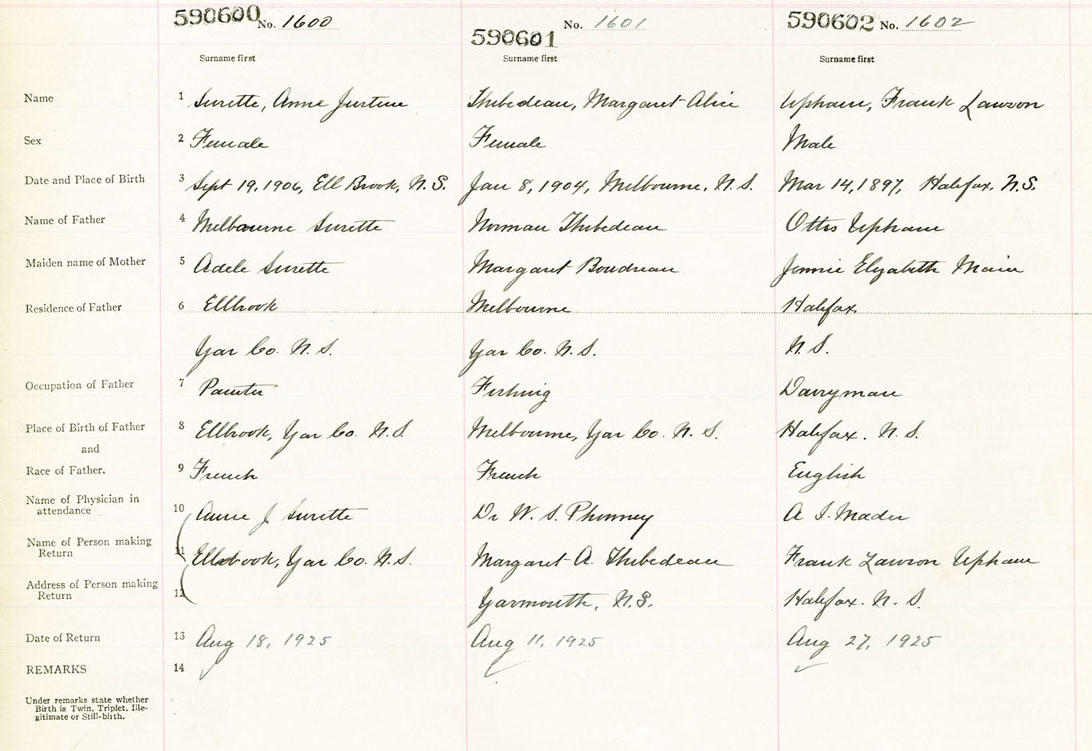 590600 No. 1600 No. 1601 590602 No. 1602
590601
Surname first Surname first Surname first
Name 1 Surette, Anne Justine Thibedeau, Margaret Alice Upham, Frank Lawson
Sex 2 Female Female Male
Date and Place of Birth 3 Sept 19, 1906, Ell Brook, N.S. Jan 8, 1904, Melbourne, N.S. Mar 14, 1897, Halifax, N.S.
Name of Father 4 Melbourne Surette Norman Thibedeau Ottis Upham
Maiden name of Mother 5 Adele Surette Margaret Boudreau Jennie Elyabeth
Residence of Father 6 Ellbrook Melbourne Halifax
Yar Co. N.S. Yar Co. N.S. N.S.
Occupation of Father 7 Painter Fishing Dairyman
Place of Birth of Father 8 Ellbrook, Yar Co. N.S. Melbourne, Yar Co. N.S. Halifax. N.S.
and
Race of Father. 9 French French English
Name of Physician in
attendance 10 Annie J Surette Dr W. S. Phinney A I. Mader
Name of Person making
Return 11 Ellsbrook, Yar Co. N.S. Margaret A. Thibedeau Frank Lawson Upham
Address of Person making
Return 12 Yarmouth, N.S. Halifax. N.S.
Date of Return 13 Aug 18, 1925 Aug 11, 1925 Aug 27, 1925
REMARKS 14
Under remarks state whether
Birth is Twin, Triplet, Ille-
gitimate or Still-birth.